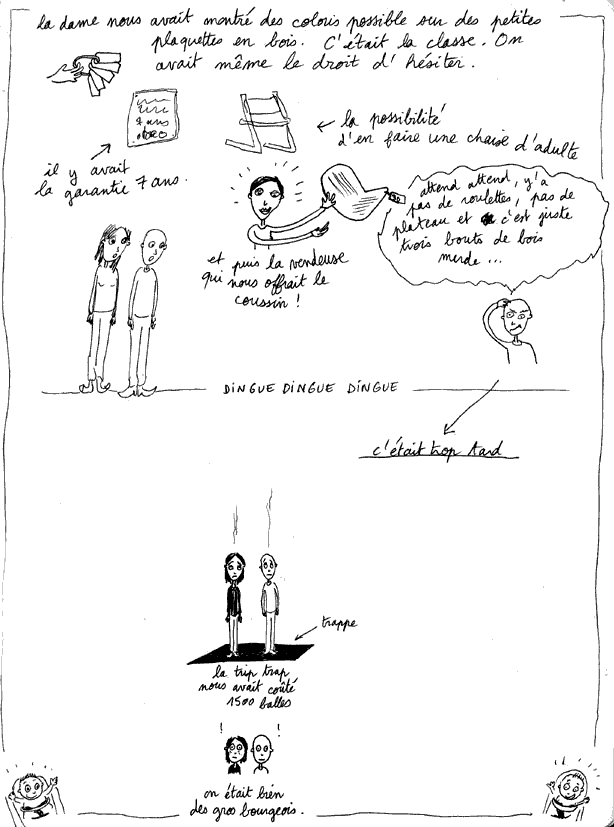 la dame nous avait montré des coloris possible sur des petites
plaquettes en bois. C'était la classe. On
avait même le droit d'hésiter.
7 ans
il y avait
la garantie 7 ans.
la possibilité
d'en faire une chaise d'adulte
et puis la vendeuse
qui nous offrait le
coussin !
attend attend, y'a
pas de roulettes, pas de
plateau et c'est juste
trois bouts de bois
merde ...
DINGUE DINGUE DINGUE
c'était trop tard
trappe
la trip trap
nous avait coûté
1500 balles
! !
on était bien
des gros bourgeois.